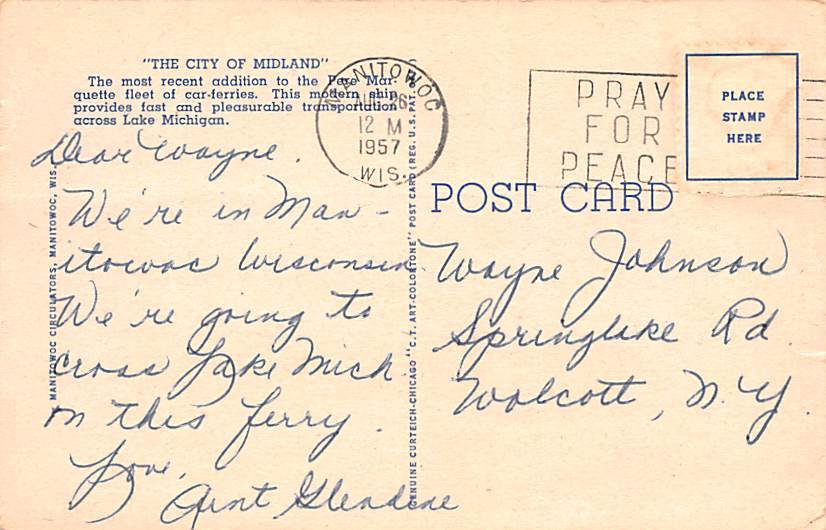 "THE CITY OF MIDLAND"
The most recent addition to the Pere Mar-
quette fleet of car-ferries. This modern ship
provides fast and pleasurable transportation
across Lake Michigan.
MANITOWOC
AUG 26
12 M
1957
WIS.
PRAY
FOR
PEACE
PLACE
STAMP
HERE
POST CARD
Dear Wayne.
We're in Man-
itowoc Wisconsin
We're going to
cross Lake Mich
on this ferry.
Love,
Aunt Glendene
Wayne Johnson
Springlake Rd.
Wolcott, N.Y.
MANITOWOC CIRCULATORS, MANITOWOC, WIS.
GENUINE CURTEICH-CHICAGO "C.T. ART-COLORTONE" POST CARD (REG. U.S. PAT.